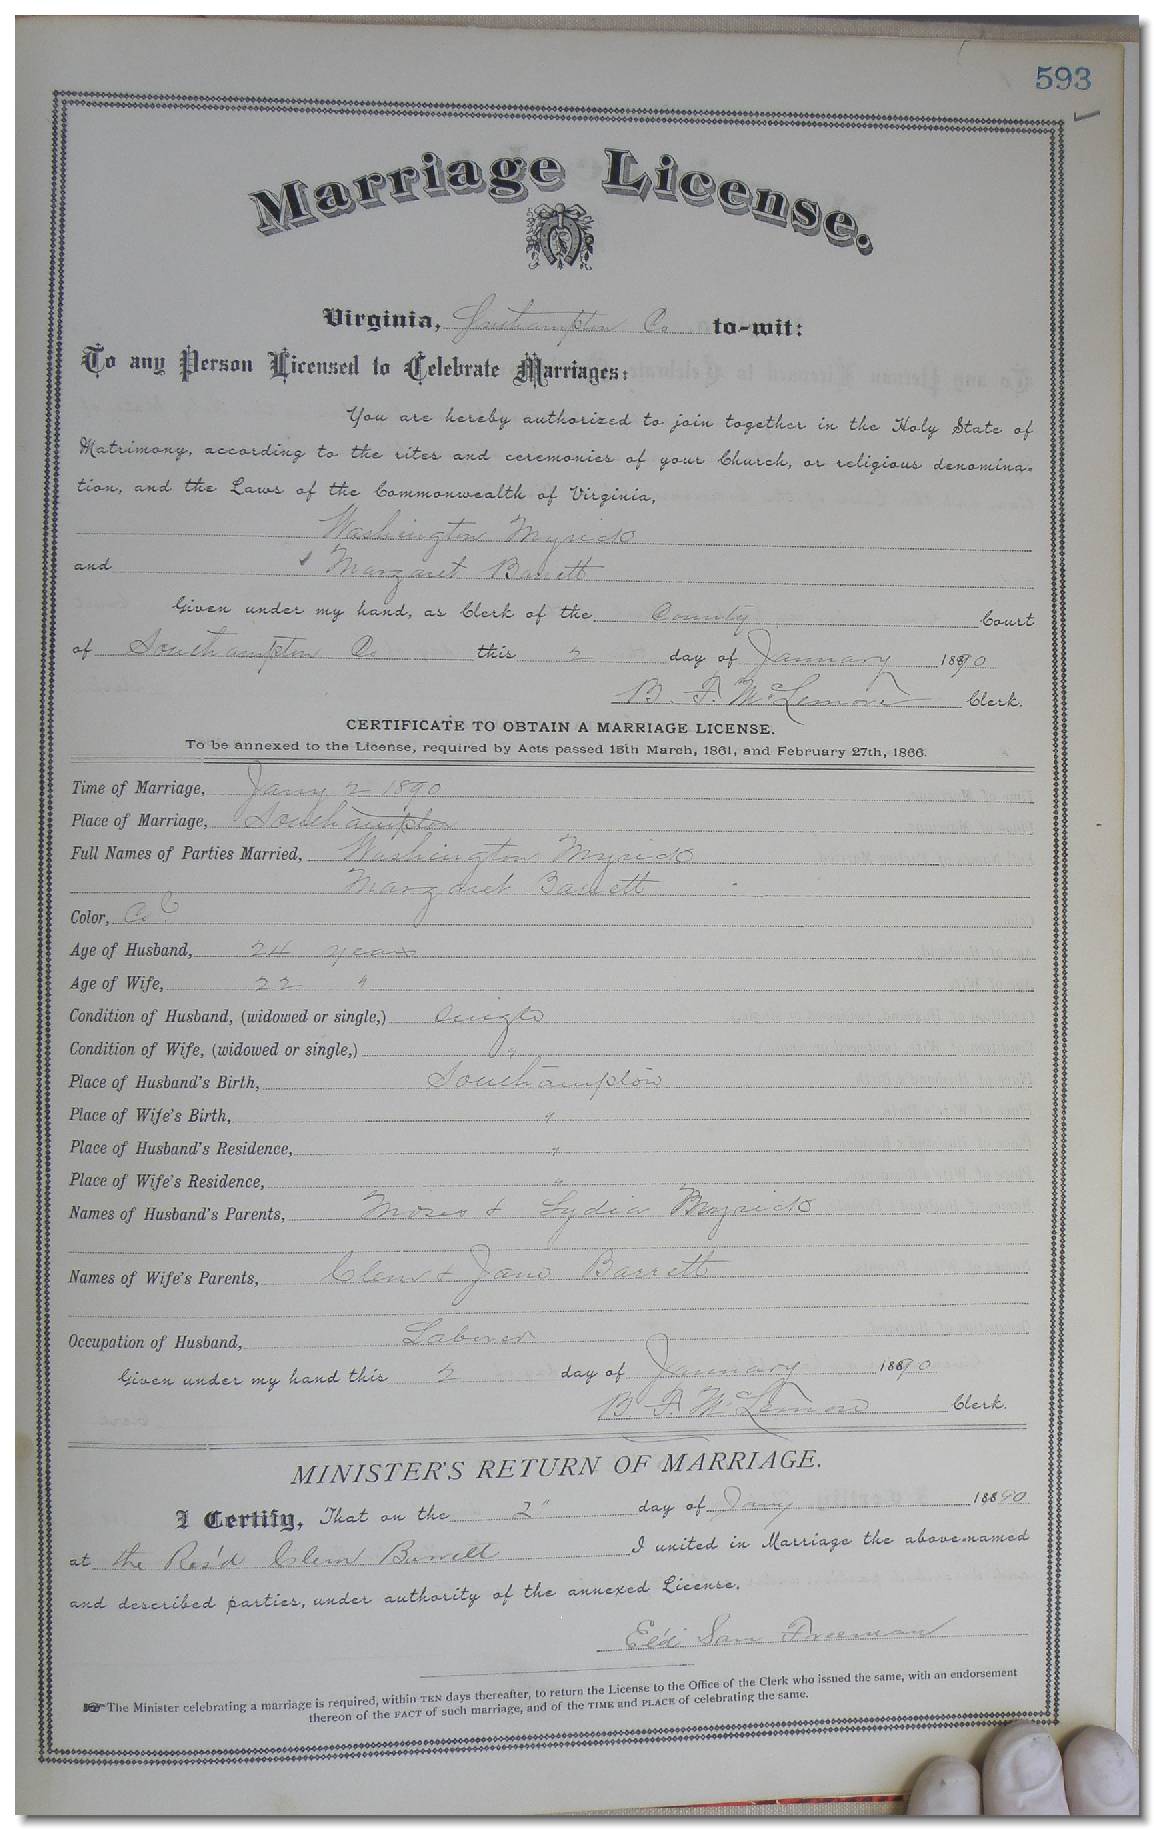 593
Marriage License.
Virginia, Southampton Co to-wit:
To any Person Licensed to Celebrate Marriages:
You are hereby authorized to join together in the Holy State of
Matrimony, according to the rites and ceremonies of your Church, or religious denomina-
tion, and the Laws of the Commonwealth of Virginia,
Washington Myrick
and Margaret Barrett
Given under my hand, as Clerk of the County Court
of Southampton Co this 2 day of January 1890
B. F. McLemore Clerk.
CERTIFICATE TO OBTAIN A MARRIAGE LICENSE.
To be annexed to the License, required by Acts passed 15th March, 1861, and February 27th, 1866.
Time of Marriage, Jany 2 1890
Place of Marriage, Southampton
Full Names of Parties Married, Washington Myrick
Margaret Barrett
Color, Cold
Age of Husband, 24 years
Age of Wife, 22 "
Condition of Husband, (widowed or single,) Single
Condition of Wife, (widowed or single,) "
Place of Husband's Birth, Southampton
Place of Wife's Birth, "
Place of Husband's Residence, "
Place of Wife's Residence, "
Names of Husband's Parents, Moses & Lydia Myrick
Names of Wife's Parents, Clem & Jane Barrett
Occupation of Husband, Laborer
Given under my hand this 2 day of January 1890
B F McLemore Clerk.
MINISTER'S RETURN OF MARRIAGE.
I Certify, That on the 2" day of Jany 1890
at the Res'd Clem I united in Marriage the above-named
and described parties, under authority of the annexed License.
Eld Sam Freeman
The Minister celebrating a marriage is required, within TEN days thereafter, to return the License to the Office of the Clerk who issued the same, with an endorsement
thereon of the FACT of such marriage, and of the TIME and PLACE of celebrating the same.